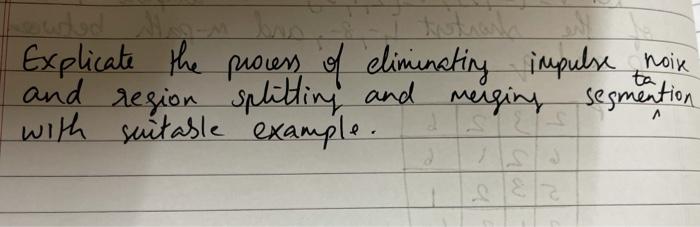 Explicate the process of eliminating impulse noise
and region splitting and merging segmentation
with suitable example.